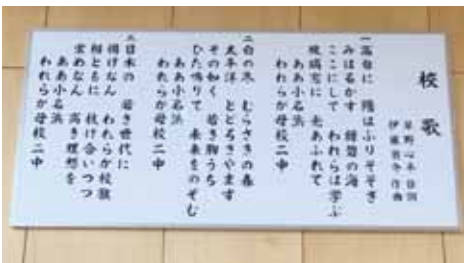 校歌
草野心平 作詞
伊藤翁介 作曲
一 高台に 陽はふりそそぎ
みはるかす 紺碧の海
ここにして われらは学ぶ
玻璃窓に 光あふれて
ああ小名浜
われらが母校二中
二 白の冬 むらさきの春
太平洋 とどろきやまず
その如く 若き胸うち
ひた鳴りて 未来をのぞむ
ああ小名浜
われらが母校二中
三 日本の 若き世代に
掲げなん われらが校旗
相ともに 扶け合いつつ
堂めなん 高き理想を
ああ小名浜
われらが母校二中